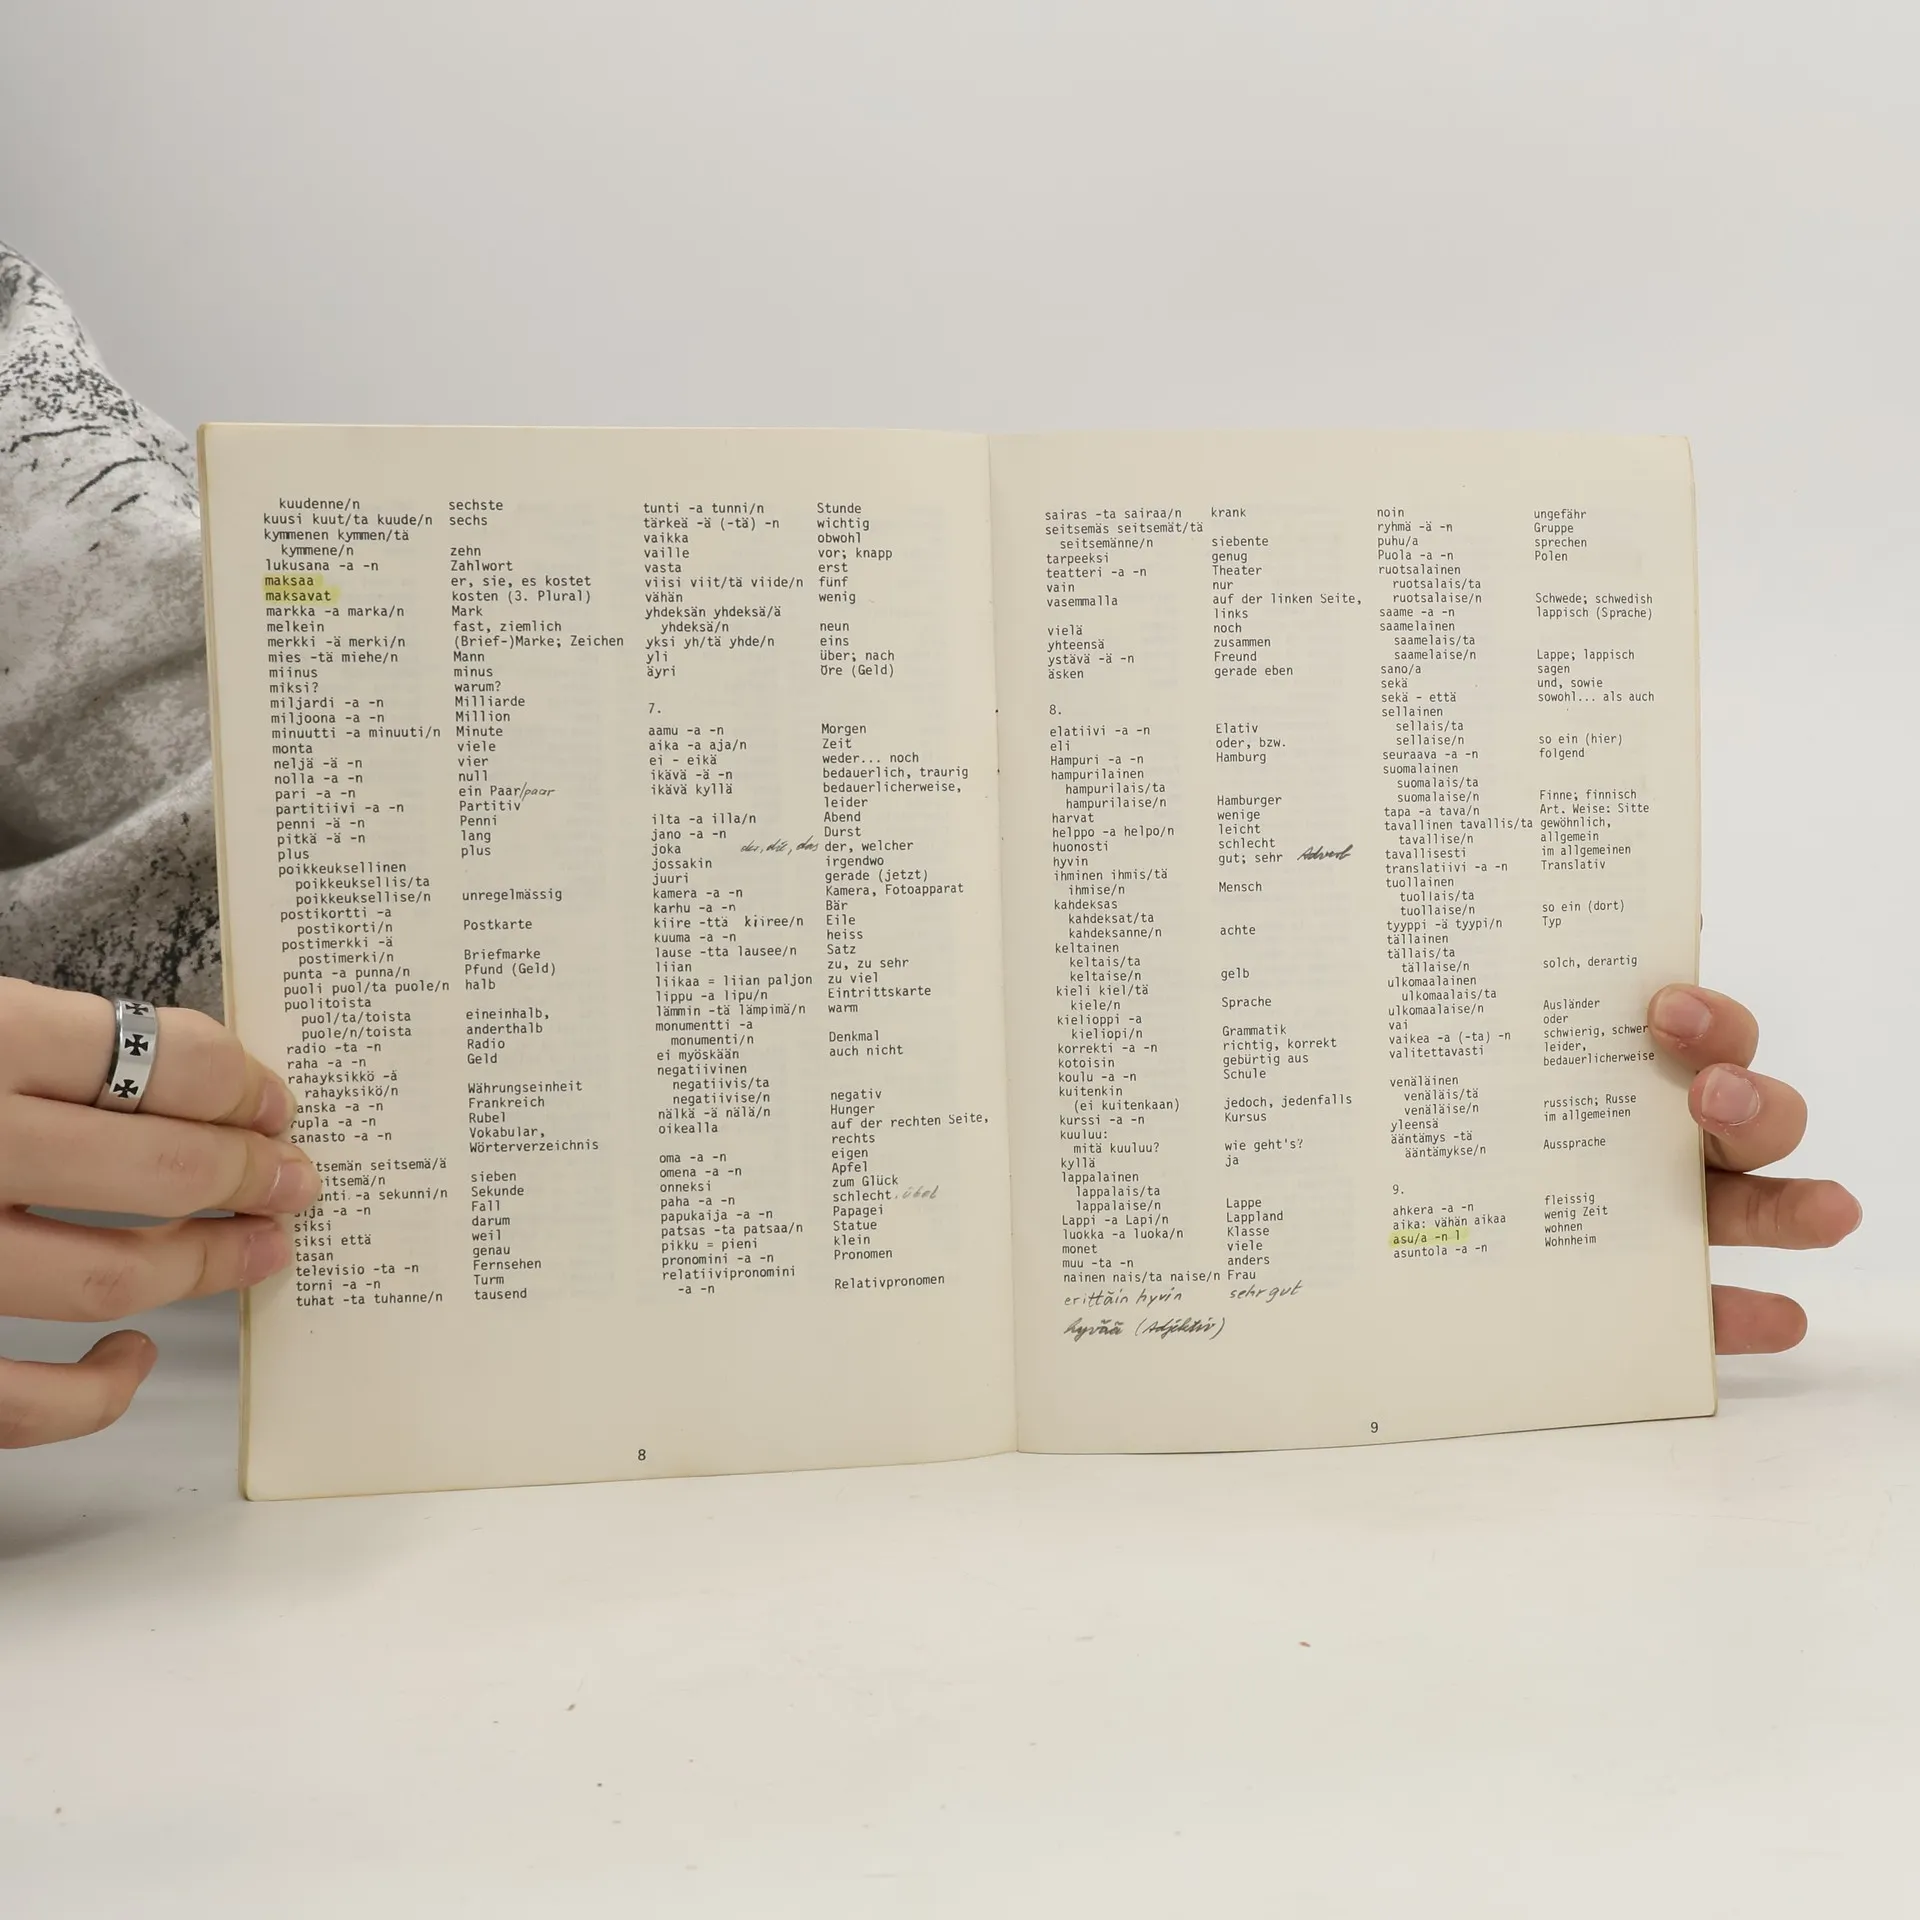 kuudenne/n sechste
kuusi kuut/ta kuude/n sechs
kymmenen kymmen/tä
kymmene/n zehn
lukusana -a -n Zahlwort
maksaa er, sie, es kostet
maksavat kosten (3. Plural)
markka -a marka/n Mark
melkein fast, ziemlich
merkki -ä merki/n (Brief-)Marke; Zeichen
mies -tä miehe/n Mann
miinus minus
miksi? warum?
miljardi -a -n Milliarde
miljoona -a -n Million
minuutti -a minuuti/n Minute
monta viele
neljä -ä -n vier
nolla -a -n null
pari -a -n ein Paar/paar
partitiivi -a -n Partitiv
penni -ä -n Penni
pitkä -ä -n lang
plus plus
poikkeuksellinen
poikkeuksellis/ta
poikkeuksellise/n unregelmässig
postikortti -a
postikorti/n Postkarte
postimerkki -ä
postimerki/n Briefmarke
punta -a punna/n Pfund (Geld)
puoli puol/ta puole/n halb
puolitoista
puol/ta/toista eineinhalb,
puole/n/toista anderthalb
radio -ta -n Radio
raha -a -n Geld
rahayksikkö -ä
rahayksikö/n Währungseinheit
anska -a -n Frankreich
rupla -a -n Rubel
sanasto -a -n Vokabular,
Wörterverzeichnis
tsemän seitsemä/ä
eitsemä/n sieben
unti -a sekunni/n Sekunde
ija -a -n Fall
siksi darum
siksi että weil
tasan genau
televisio -ta -n Fernsehen
torni -a -n Turm
tuhat -ta tuhanne/n tausend
tunti -a tunni/n Stunde
tärkeä -ä (-tä) -n wichtig
vaikka obwohl
vaille vor; knapp
vasta erst
viisi viit/tä viide/n fünf
vähän wenig
yhdeksän yhdeksä/ä
yhdeksä/n neun
yksi yh/tä yhde/n eins
yli über; nach
äyri Öre (Geld)
7.
aamu -a -n Morgen
aika -a aja/n Zeit
ei - eikä weder... noch
ikävä -ä -n bedauerlich, traurig
ikävä kyllä bedauerlicherweise,
leider
ilta -a illa/n Abend
jano -a -n Durst
joka der, die, das der, welcher
jossakin irgendwo
juuri gerade (jetzt)
kamera -a -n Kamera, Fotoapparat
karhu -a -n Bär
kiire -ttä kiiree/n Eile
kuuma -a -n heiss
lause -tta lausee/n Satz
liian zu, zu sehr
liikaa = liian paljon zu viel
lippu -a lipu/n Eintrittskarte
lämmin -tä lämpimä/n warm
monumentti -a
monumenti/n Denkmal
ei myöskään auch nicht
negatiivinen
negatiivis/ta
negatiivise/n negativ
nälkä -ä nälä/n Hunger
oikealla auf der rechten Seite,
rechts
oma -a -n eigen
omena -a -n Apfel
onneksi zum Glück
paha -a -n schlecht. übel
papukaija -a -n Papagei
patsas -ta patsaa/n Statue
pikku = pieni klein
pronomini -a -n Pronomen
relatiivipronomini
-a -n Relativpronomen
8
sairas -ta sairaa/n krank
seitsemäs seitsemät/tä
seitsemänne/n siebente
tarpeeksi genug
teatteri -a -n Theater
vain nur
vasemmalla auf der linken Seite,
links
vielä noch
yhteensä zusammen
ystävä -ä -n Freund
äsken gerade eben
8.
elatiivi -a -n Elativ
eli oder, bzw.
Hampuri -a -n Hamburg
hampurilainen
hampurilais/ta
hampurilaise/n Hamburger
harvat wenige
helppo -a helpo/n leicht
huonosti schlecht
hyvin gut; sehr Adverb
ihminen ihmis/tä
ihmise/n Mensch
kahdeksas
kahdeksat/ta
kahdeksanne/n achte
keltainen
keltais/ta
keltaise/n gelb
kieli kiel/tä
kiele/n Sprache
kielioppi -a
kieliopi/n Grammatik
korrekti -a -n richtig, korrekt
kotoisin gebürtig aus
koulu -a -n Schule
kuitenkin
(ei kuitenkaan) jedoch, jedenfalls
kurssi -a -n Kursus
kuuluu:
mitä kuuluu? wie geht's?
kyllä ja
lappalainen
lappalais/ta
lappalaise/n Lappe
Lappi -a Lapi/n Lappland
luokka -a luoka/n Klasse
monet viele
muu -ta -n anders
nainen nais/ta naise/n Frau
erittäin hyvin sehr gut
hyvää (Adjektiv)
noin ungefähr
ryhmä -ä -n Gruppe
puhu/a sprechen
Puola -a -n Polen
ruotsalainen
ruotsalais/ta
ruotsalaise/n Schwede; schwedish
saame -a -n lappisch (Sprache)
saamelainen
saamelais/ta
saamelaise/n Lappe; lappisch
sano/a sagen
sekä und, sowie
sekä - että sowohl... als auch
sellainen
sellais/ta
sellaise/n so ein (hier)
seuraava -a -n folgend
suomalainen
suomalais/ta
suomalaise/n Finne; finnisch
tapa -a tava/n Art. Weise: Sitte
tavallinen tavallis/ta gewöhnlich,
tavallise/n allgemein
tavallisesti im allgemeinen
translatiivi -a -n Translativ
tuollainen
tuollais/ta
tuollaise/n so ein (dort)
tyyppi -ä tyypi/n Typ
tällainen
tällais/ta
tällaise/n solch, derartig
ulkomaalainen
ulkomaalais/ta
ulkomaalaise/n Ausländer
vai oder
vaikea -a (-ta) -n schwierig, schwer
valitettavasti leider,
bedauerlicherweise
venäläinen
venäläis/tä
venäläise/n russisch; Russe
yleensä im allgemeinen
ääntämys -tä
ääntämykse/n Aussprache
9.
ahkera -a -n fleissig
aika: vähän aikaa wenig Zeit
asu/a -n l wohnen
asuntola -a -n Wohnheim
9